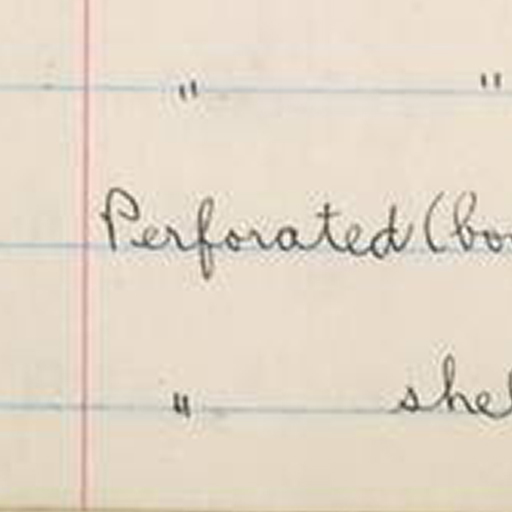 " "
Perforated (bo
" shel